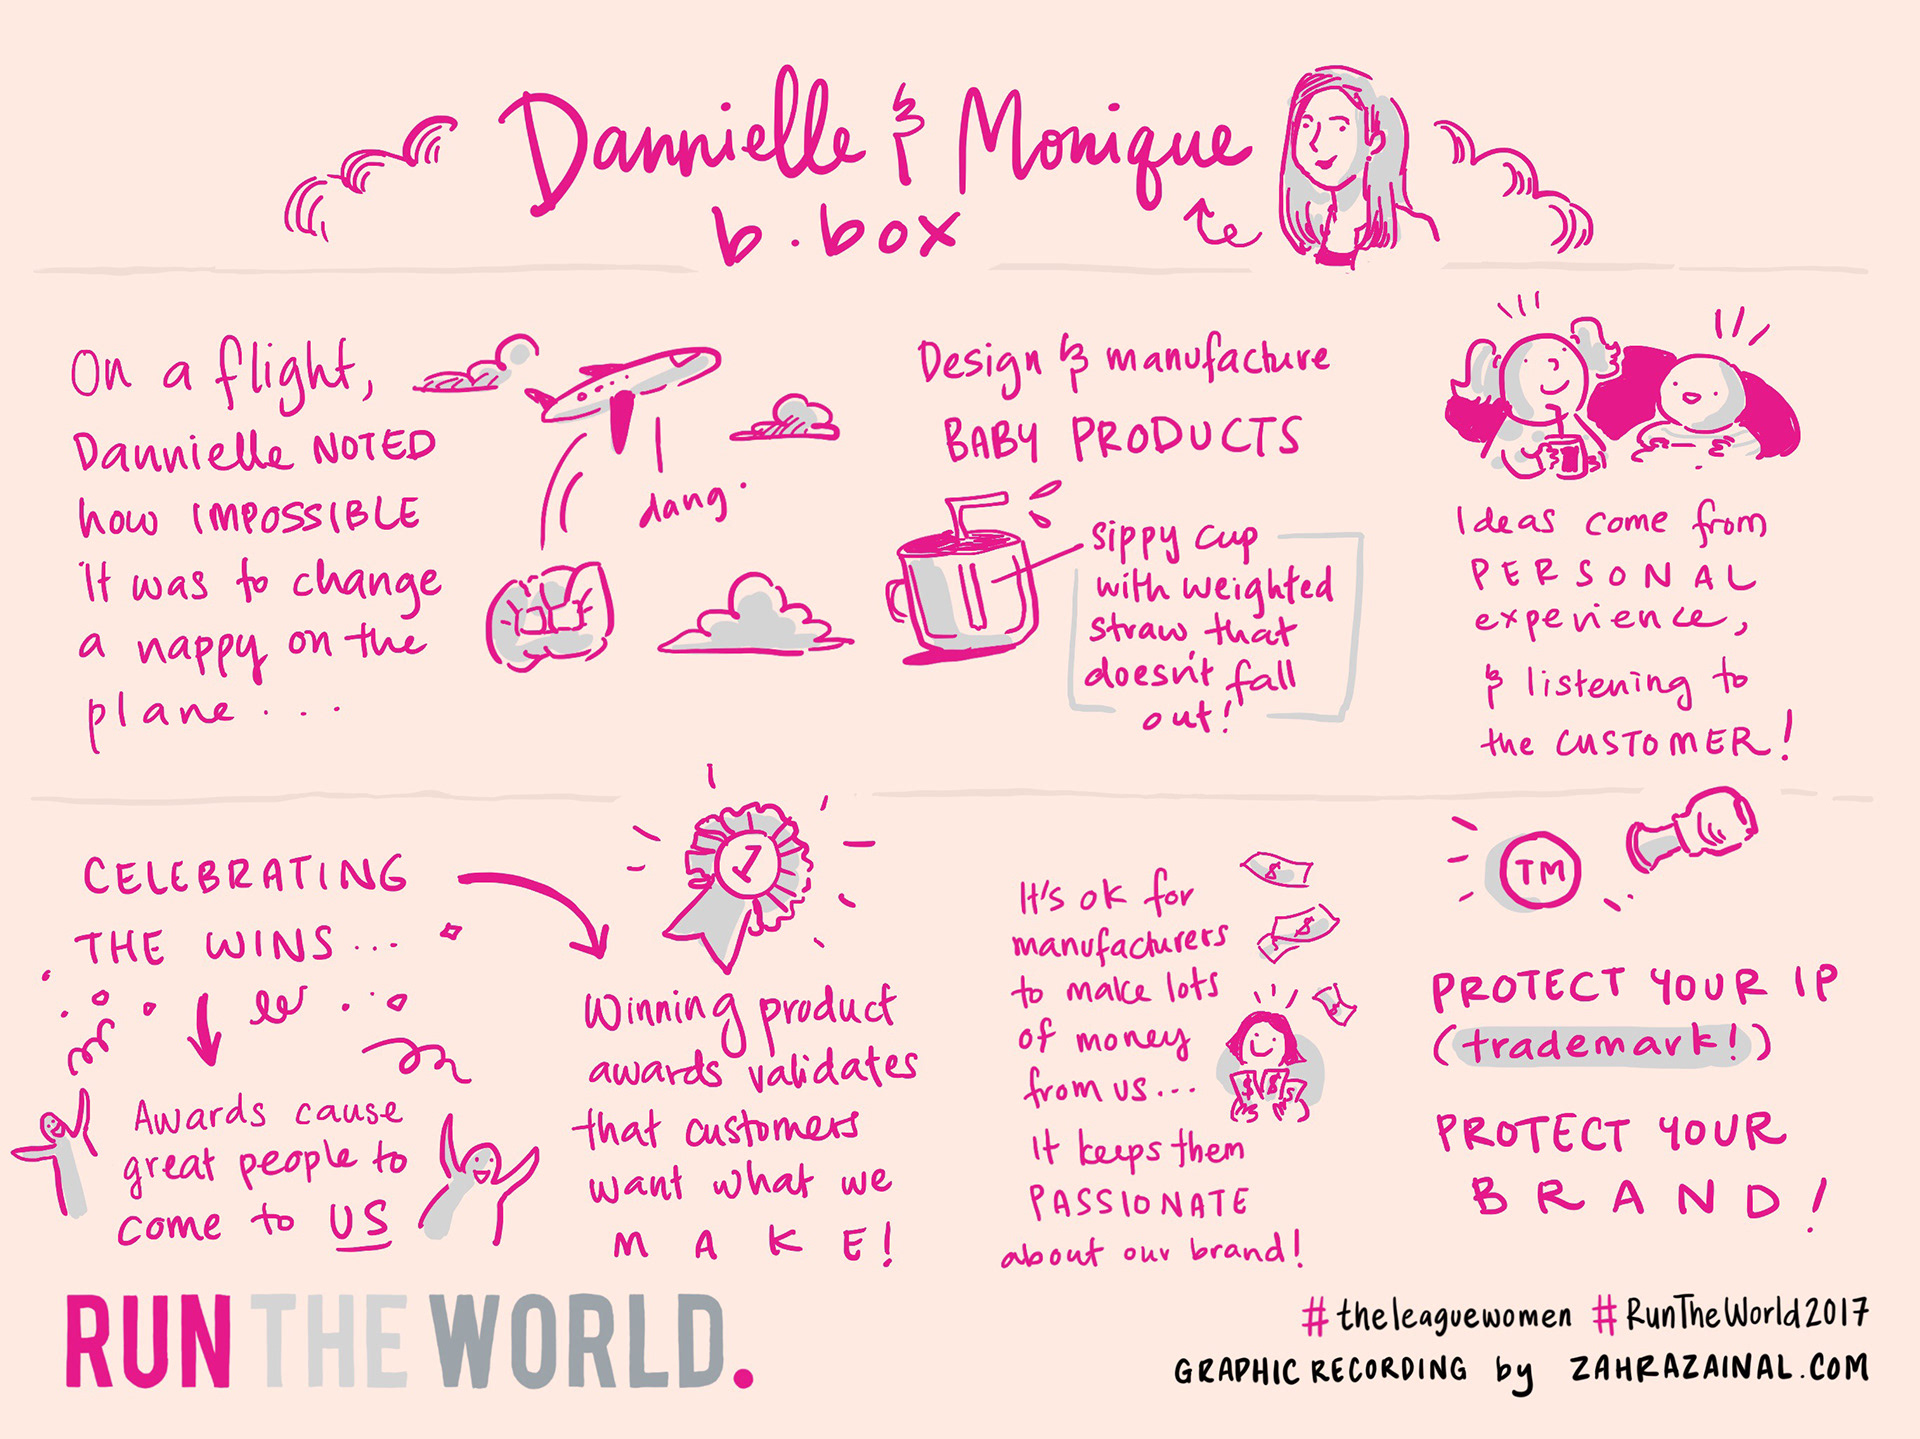 Dannielle & Monique
b.box
On a flight,
Dannielle NOTED
how IMPOSSIBLE
it was to change
a nappy on the
plane...
dang.
Design & manufacture
BABY PRODUCTS
sippy cup
with weighted
straw that
doesn't fall
out!
Ideas come from
PERSONAL
experience,
& listening to
the CUSTOMER!
CELEBRATING
THE WINS...
Awards cause
great people to
come to US
1
Winning product
awards validates
that customers
want what we
MAKE!
It's ok for
manufacturers
to make lots
of money
from us...
It keeps them
PASSIONATE
about our brand!
$
$
$
$ $ $
TM
PROTECT YOUR IP
(trademark!)
PROTECT YOUR
BRAND!
RUN THE WORLD.
#theleaguewomen #RunTheWorld2017
GRAPHIC RECORDING by ZAHRAZAINAL.COM